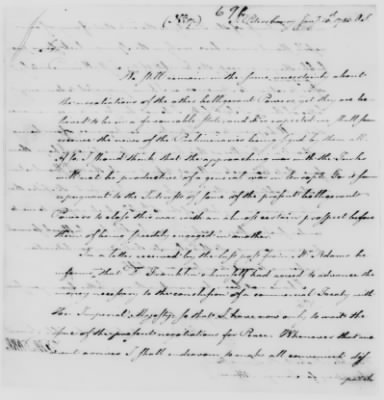 (No. 9) 696 St. Petersbourg Jany. 1783 O.S.
We still remain in the same uncertainty about
the negotiations of the other belligerent Powers yet they are be-
lieved to be in a favourable state, and it is expected in
the news of the Preliminaries being signed by them all.
I should think that the approaching war with the Turks
would be productive of a general war in Europe did it
repugnant to the Interests of some of the present belligerent
Powers to close this war with an almost certain prospect before
them of being speedily engaged in another.
In a letter received by the last post from Mr. Adams he
informs, that Dr. Franklin and himself had agreed to advance the
money necessary to the conclusion of a commercial Treaty with
Her Imperial Majesty; so that I have now only to wait the
issue of the present negotiations for Peace. Whenever that mo-
ment arrives I shall endeavour to make all convenient dis-
patch